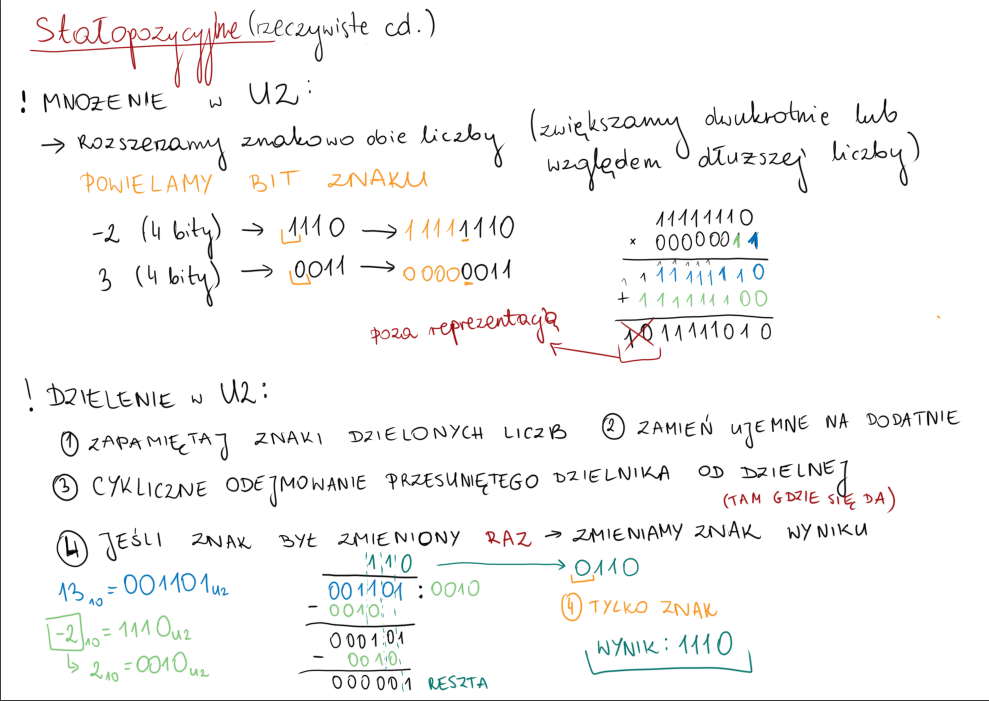 Stałopozycyjne (rzeczywiste cd.)
! MNOŻENIE w U2:
→ Rozszerzamy znakowo obie liczby (zwiększamy dwukrotnie lub względem dłuższej liczby)
POWIELAMY BIT ZNAKU
-2 (4 bity) → 1110 → 11111110
3 (4 bity) → 0011 → 00000011
11111110
× 00000011
1 1 11111110
+ 111111100
1011111010
poza reprezentacją
! DZIELENIE w U2:
① ZAPAMIĘTAJ ZNAKI DZIELONYCH LICZB ② ZAMIEŃ UJEMNE NA DODATNIE
③ CYKLICZNE ODEJMOWANIE PRZESUNIĘTEGO DZIELNIKA OD DZIELNEJ
(TAM GDZIE SIĘ DA)
④ JEŚLI ZNAK BYŁ ZMIENIONY RAZ → ZMIENIAMY ZNAK WYNIKU
13₁₀ = 001101U2
-2₁₀ = 1110U2
↳ 2₁₀ = 0010U2
110 → 0110
001101 : 0010
- 0010
000101
- 0010
000001 RESZTA
④ TYLKO ZNAK
WYNIK: 1110